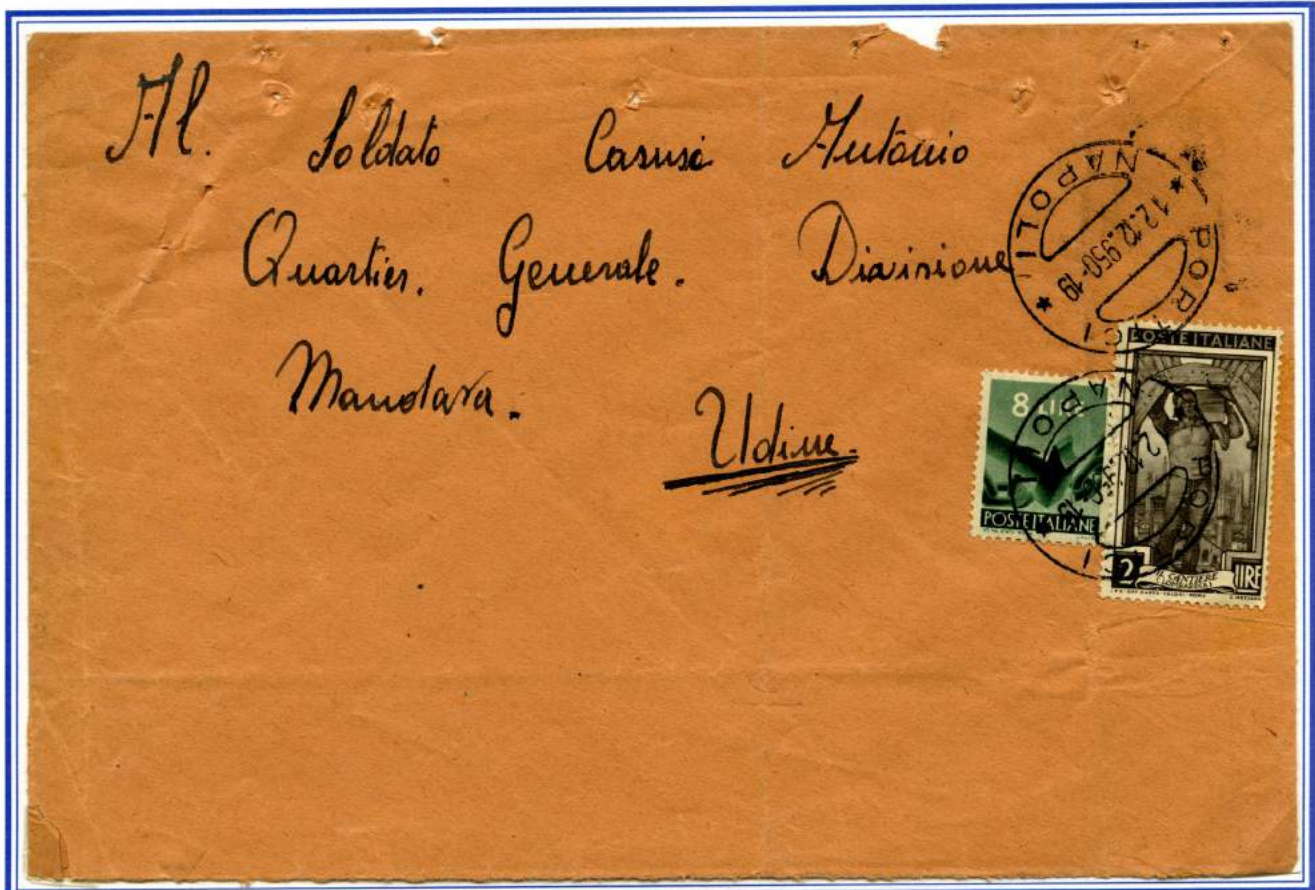 Al. Soldato Carusi Antonio
Quartier. Generale. Divisione
Mandara.
Udine.
PORTICI
* NAPOLI *
12.12.950-19
8 LIRE
POSTE ITALIANE
POSTE ITALIANE
2 LIRE
PORTICI
NAPOLI